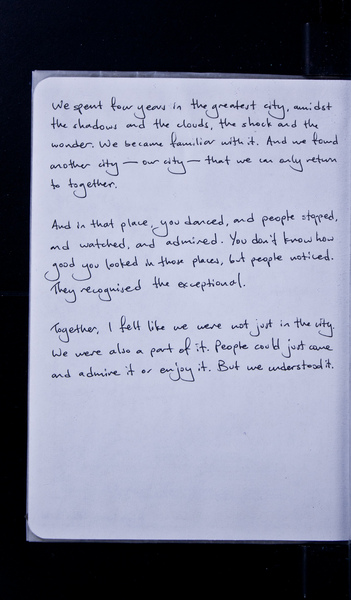 We spent four years in the greatest city, amidst
the shadows and the clouds, the shock and the
wonder. We became familiar with it. And we found
another city — our city — that we can only return
to together.
And in that place, you danced, and people stopped,
and watched, and admired. You don't know how
good you looked in those places, but people noticed.
They recognised the exceptional.
Together, I felt like we were not just in the city.
We were also a part of it. People could just come
and admire it or enjoy it. But we understood it.